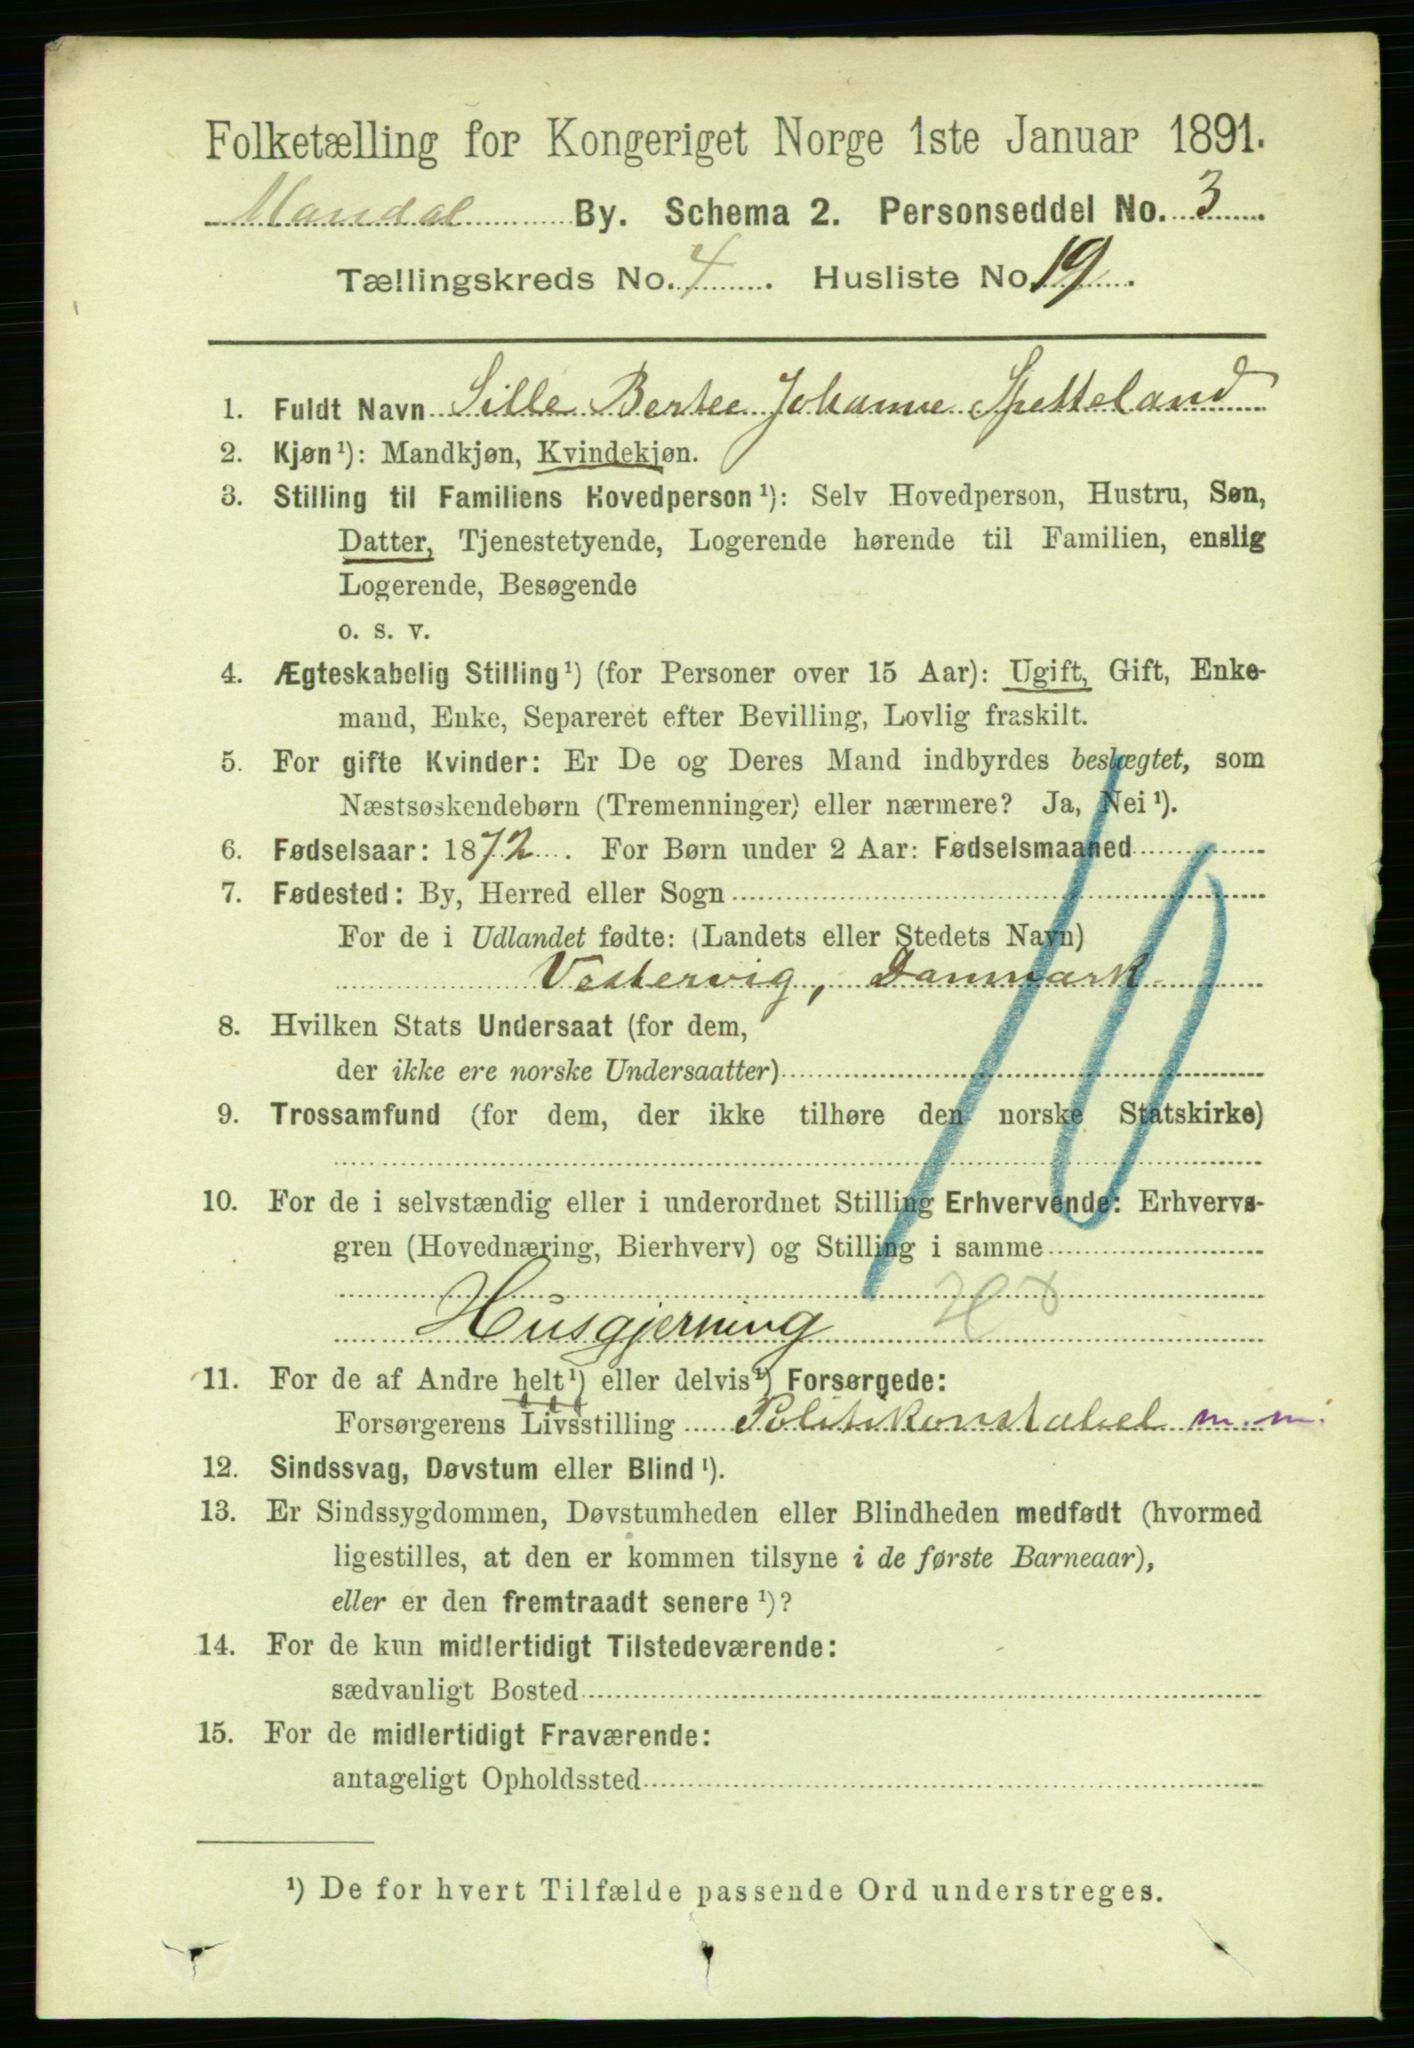 Folketælling for Kongeriget Norge 1ste Januar 1891.
Mandal By. Schema 2. Personseddel No. 3.
Tællingskreds No. 4. Husliste No 19.
1. Fuldt Navn Sille Bertee Johanne Spetteland
2. Kjøn¹): Mandkjøn, Kvindekjøn.
3. Stilling til Familiens Hovedperson¹): Selv Hovedperson, Hustru, Søn,
Datter, Tjenestetyende, Logerende hørende til Familien, enslig
Logerende, Besøgende
o. s. v.
4. Ægteskabelig Stilling¹) (for Personer over 15 Aar): Ugift, Gift, Enke-
mand, Enke, Separeret efter Bevilling, Lovlig fraskilt.
5. For gifte Kvinder: Er De og Deres Mand indbyrdes beslægtet, som
Næstsøskendebørn (Tremenninger) eller nærmere? Ja, Nei¹).
6. Fødselsaar: 1872. For Børn under 2 Aar: Fødselsmaaned
7. Fødested: By, Herred eller Sogn
For de i Udlandet fødte: (Landets eller Stedets Navn)
Vestervig, Danmark
8. Hvilken Stats Undersaat (for dem,
der ikke ere norske Undersaatter)
9. Trossamfund (for dem, der ikke tilhøre den norske Statskirke)
10. For de i selvstændig eller i underordnet Stilling Erhvervende: Erhvervs-
gren (Hovednæring, Bierhverv) og Stilling i samme
10
Husgjerning
11. For de af Andre helt¹) eller delvis¹) Forsørgede:
Forsørgerens Livsstilling Politikonstabel m.m.
12. Sindssvag, Døvstum eller Blind¹).
13. Er Sindssygdommen, Døvstumheden eller Blindheden medfødt (hvormed
ligestilles, at den er kommen tilsyne i de første Barneaar),
eller er den fremtraadt senere¹)?
14. For de kun midlertidigt Tilstedeværende:
sædvanligt Bosted
15. For de midlertidigt Fraværende:
antageligt Opholdssted
¹) De for hvert Tilfælde passende Ord understreges.